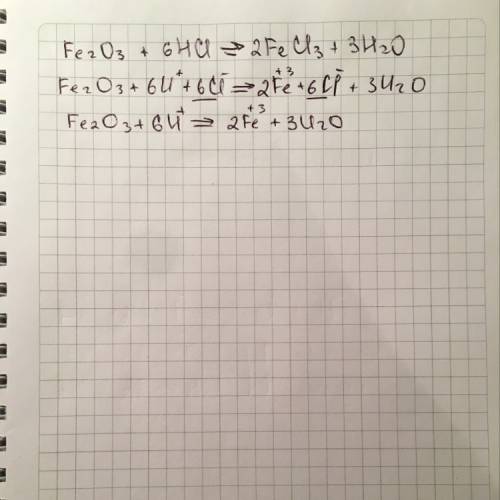 Fe₂O₃ + 6HCl ⇒ 2FeCl₃ + 3H₂O
Fe₂O₃ + 6H⁺ + 6Cl⁻ ⇒ 2Fe⁺³ + 6Cl⁻ + 3H₂O
Fe₂O₃ + 6H⁺ ⇒ 2Fe⁺³ + 3H₂O